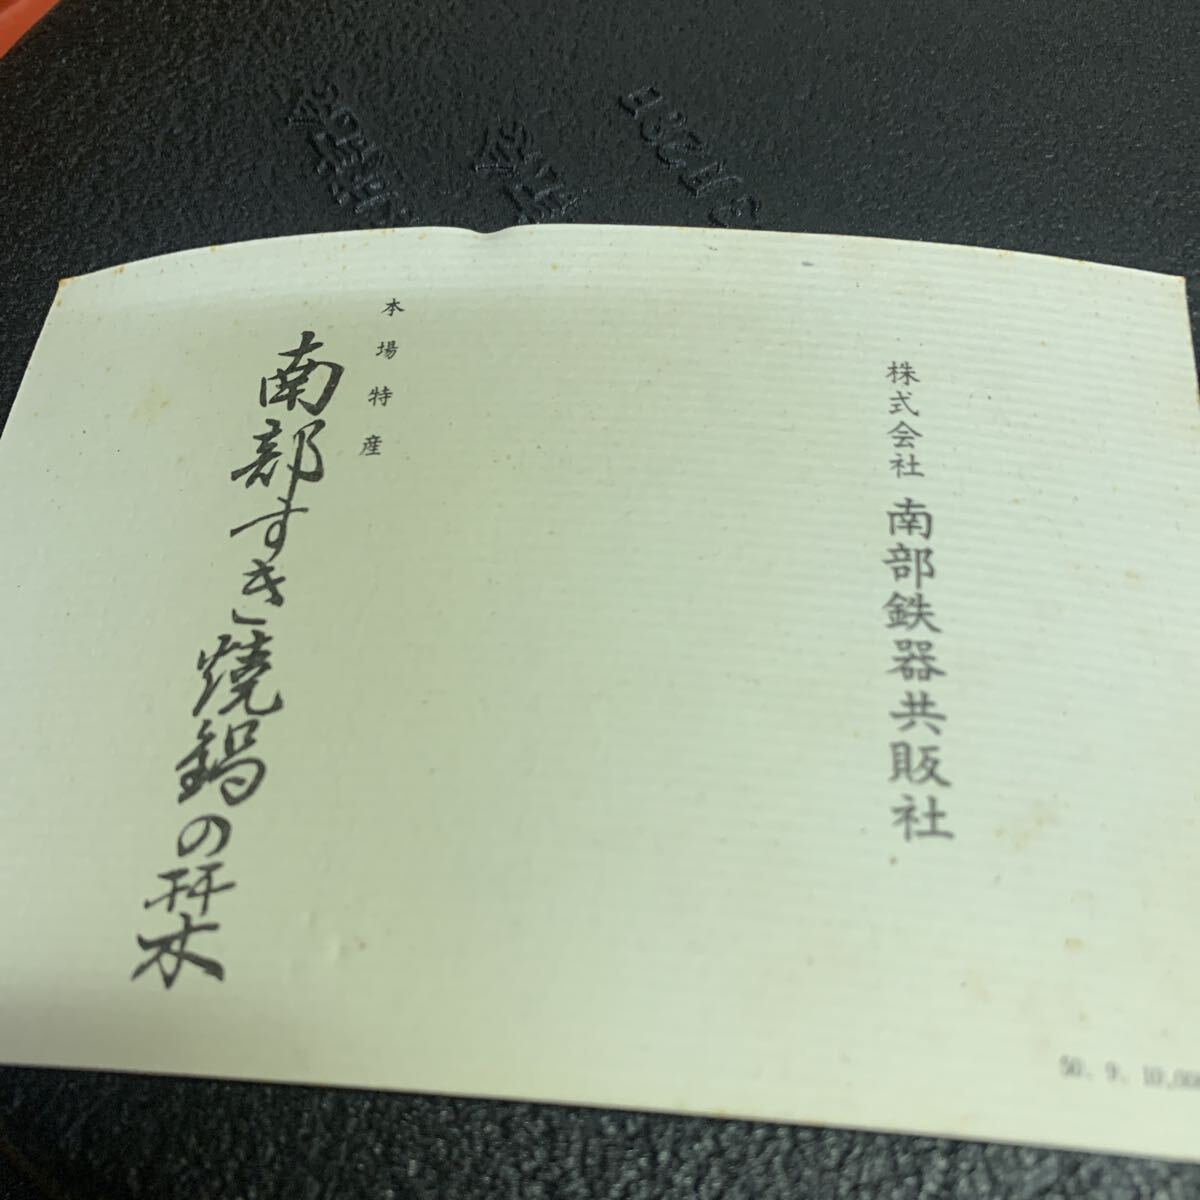 株式会社 南部鉄器共販社
本場特産
南部すき焼鍋の栞
50. 9. 10,00